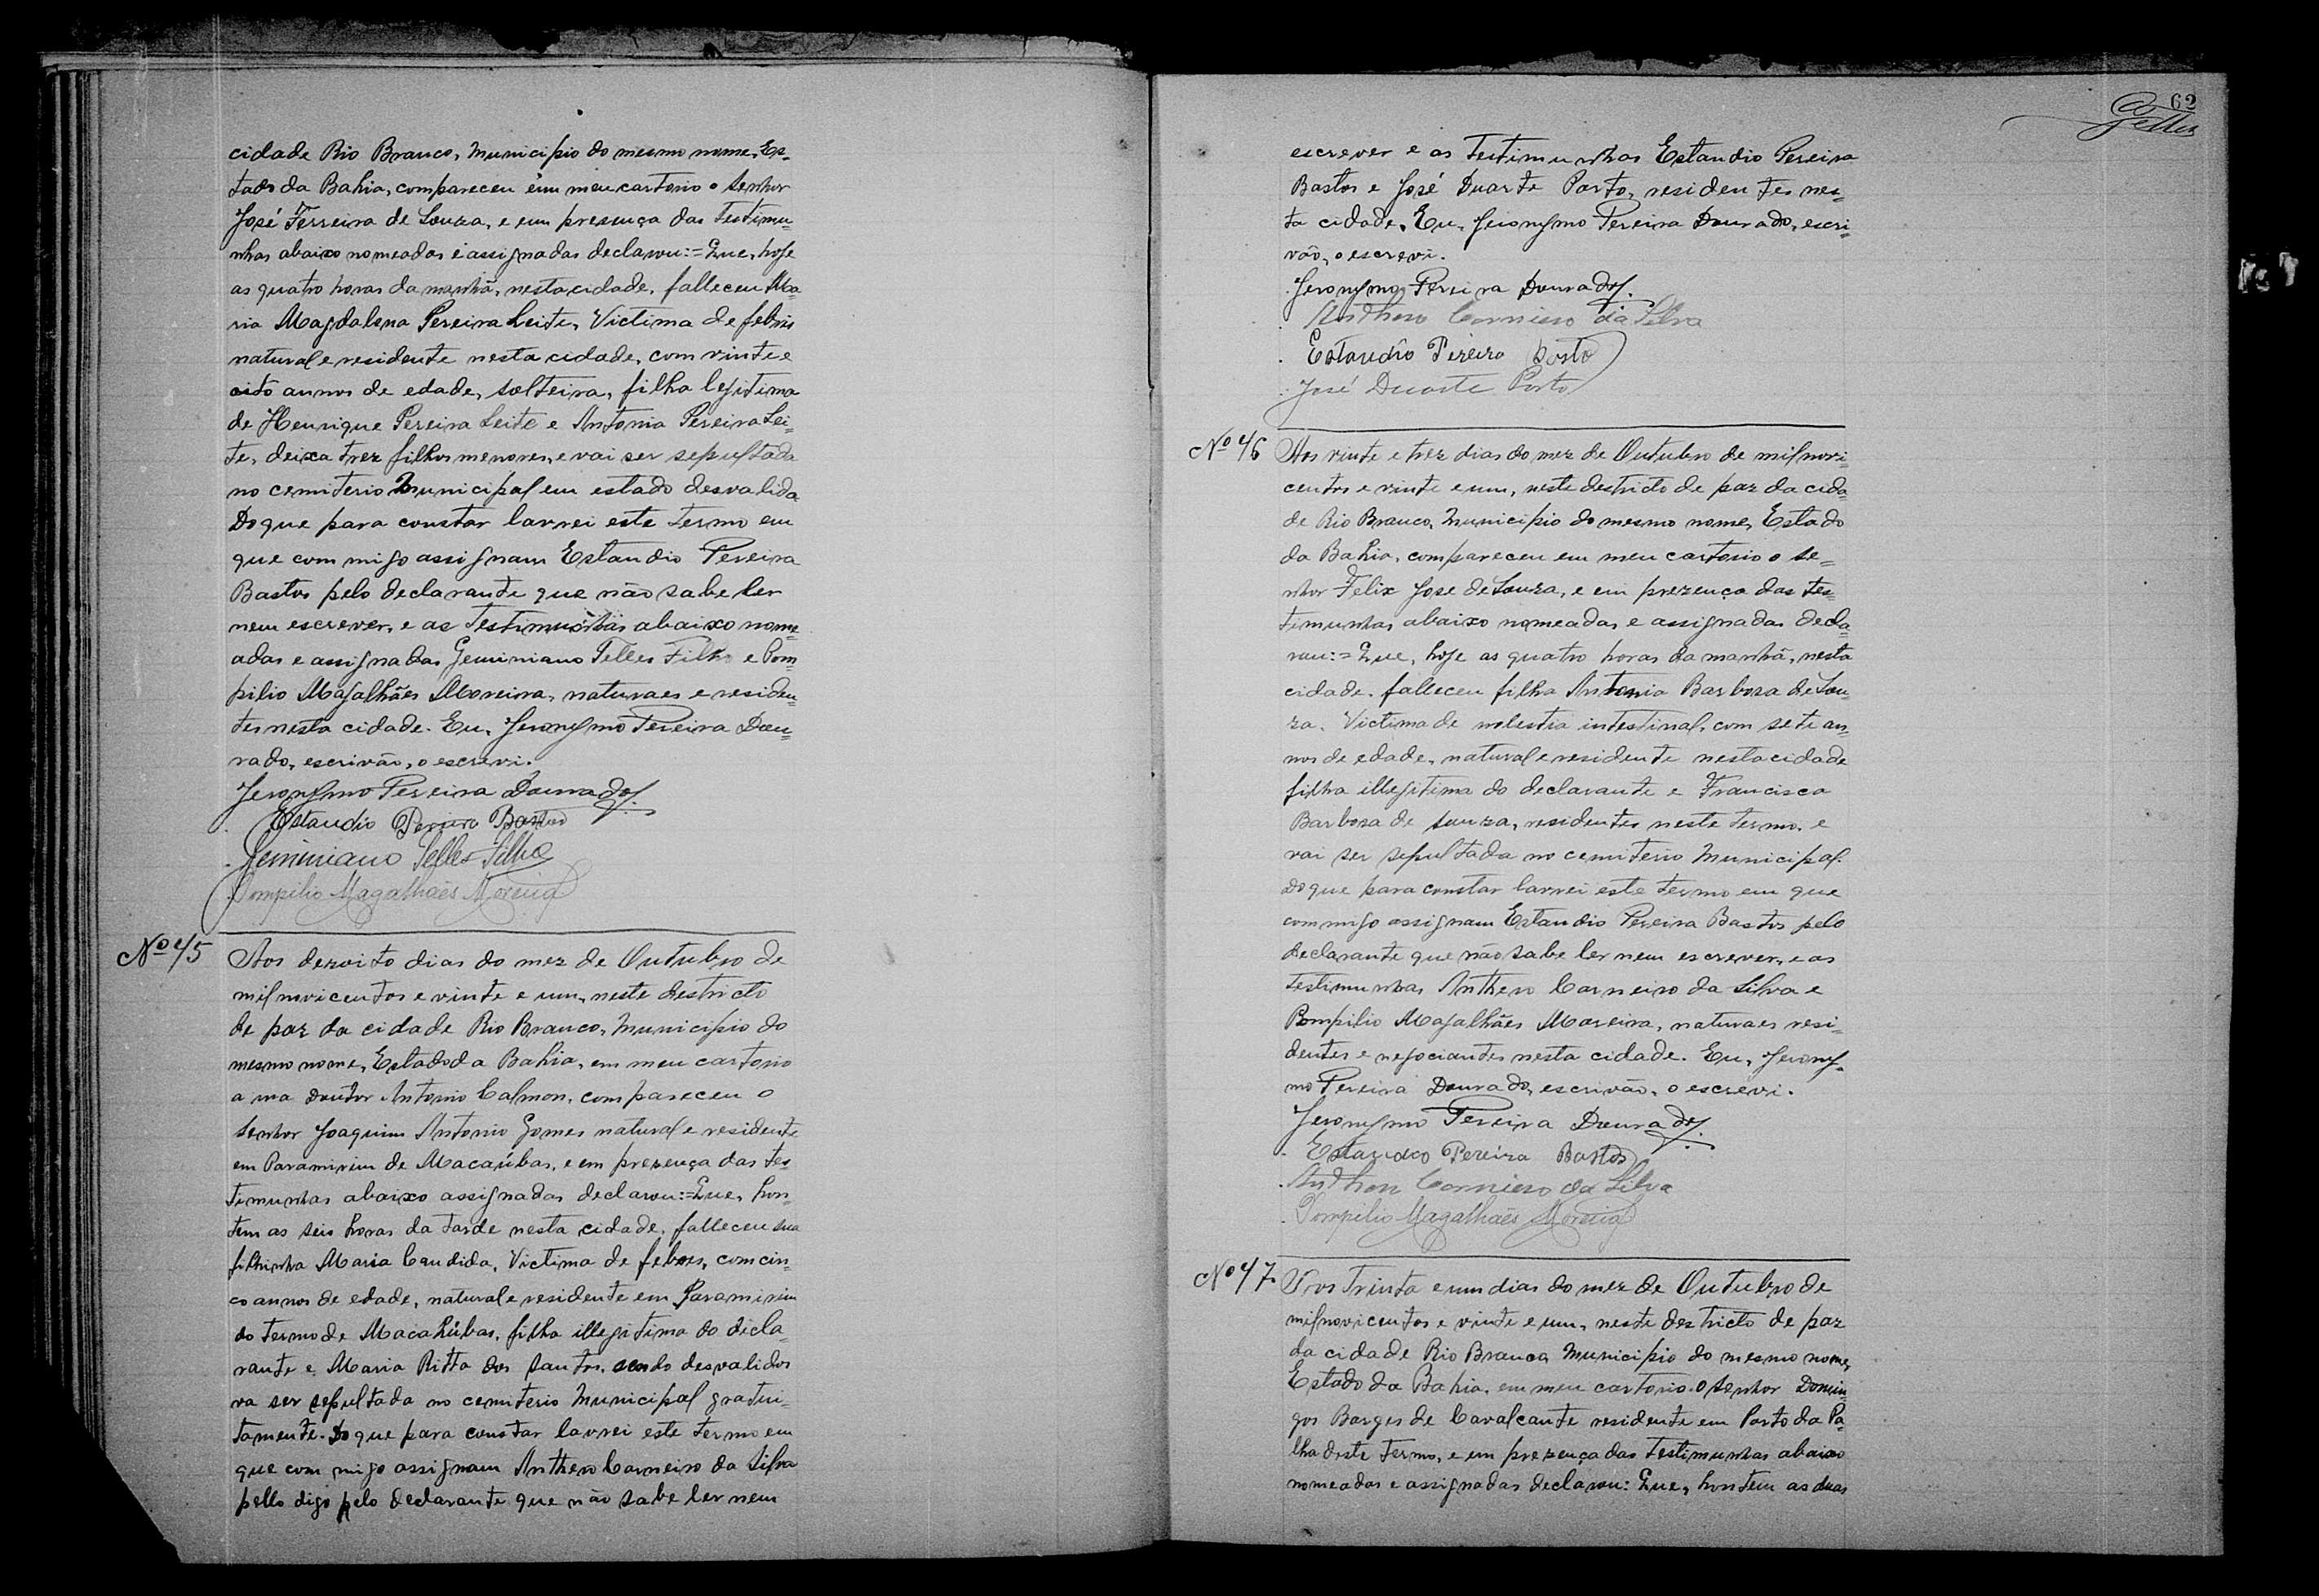 cidade Rio Branco, Municipio do mesmo nome, Es=
tado da Bahia, compareceu em meu cartorio o Senhor
José Ferreira de Souza, e em presença das Testimu=
nhas abaixo nomeadas e assignadas declarou:=Que, hoje
as quatro horas da manhã, nesta cidade, falleceu Ma=
ria Magdalena Pereira Leite, Victima de febris
natural e residente nesta cidade, com vinte e
oito annos de edade, solteira, filha legitima
de Henrique Pereira Leite e Antonia Pereira Lei=
te, deixa trez filhos menores, e vai ser sepultada
no cemiterio Municipal em estado desvalida
Do que para constar lavrei este termo em
que commigo assignam Estandio Pereira
Bastos pelo declarante que não sabe ler
nem escrever, e as Testimunhas abaixo nome=
adas e assignadas Geminiano Telles Filho e Pom=
pilio Magalhães Moreira, naturaes e residen=
tes nesta cidade. Eu, Jeronymo Pereira Dou=
rado, escrivão, o escrevi.
Jeronymo Pereira Dourado.
Estandio Pereira Bastos
Geminiano Telles Filho
Pompilio Magalhães Moreira
Nº 45 Aos dezoito dias do mez de Outubro de
mil novicentos e vinte e um, neste destricto
de paz da cidade Rio Branco, Municipio do
mesmo nome, Estado da Bahia, em meu cartorio
a rua Doutor Antonio Calmon, compareceu o
Senhor Joaquim Antonio Gomes natural e residente
em Paramirim de Macaúbas, e em prezença das tes=
timunhas abaixo assignadas declarou:=Que, hon=
tem as seis horas da tarde nesta cidade, falleceu sua
filhinha Maria Candida, Victima de febres, com cin=
co annos de edade, natural e residente em Paramirim
do termo de Macahúbas, filha illegitima do decla=
rante e Maria Ritta dos Santos, sendo desvalidos
va ser sepultada no cemiterio Municipal gratui=
tamente. Do que para constar lavrei este termo em
que com migo assignam Anthero Carneiro da Silva
pello digo pelo declarante que não sabe ler nem
62
Telles
escrever e as Testimunhas Estandio Pereira
Bastos e José Duarte Porto, residentes nes=
ta cidade. Eu, Jeronymo Pereira Dourado, escri=
vão, o escrevi.
Jeronymo Pereira Dourado.
Anthero Carneiro da Silva
Estandio Pereira Bastos
José Duarte Porto
Nº 46 Aos vinte e trez dias do mez de Outubro de mil novi=
centos e vinte e um, neste destricto de paz da cida=
de Rio Branco, Municipio do mesmo nome, Estado
da Bahia, compareceu em meu cartorio o Se=
nhor Felix Jose de Souza, e em prezença das tes=
timunhas abaixo nomeadas e assignadas decla=
rou:=Que, hoje as quatro horas da manhã, nesta
cidade. falleceu filha Antonia Barboza de Sou=
za. Victima de molestia intestinal, com sete an=
nos de edade, natural e residente nesta cidade
filha illegitima do declarante e Francisca
Barboza de Souza, residentes neste termo, e
vai ser sepultada no cemiterio Municipal.
Do que para constar lavrei este termo em que
commigo assignam Estandio Pereira Bastos pelo
declarante que não sabe ler nem escrever, e as
testimunhas Anthero Carneiro da Silva e
Pompilio Magalhães Moreira, naturaes resi=
dentes e negociantes nesta cidade. Eu, Jerony=
mo Pereira Dourado, escrivão, o escrevi.
Jeronymo Pereira Dourado.
Estandio Pereira Bastos
Anthero Carneiro da Silva
Pompilio Magalhães Moreira
Nº 47. Aos trinta e um dias do mez de Outubro de
mil novicentos e vinte e um, neste destricto de paz
da cidade Rio Branco, Municipio do mesmo nome,
Estado da Bahia, em meu cartorio. o Senhor Domin=
gos Borges de Cavalcante residente em Porto da Pa=
lha deste termo, e em prezença das Testimunhas abaixo
nomeadas e assignadas declarou: Que, hontem as duas